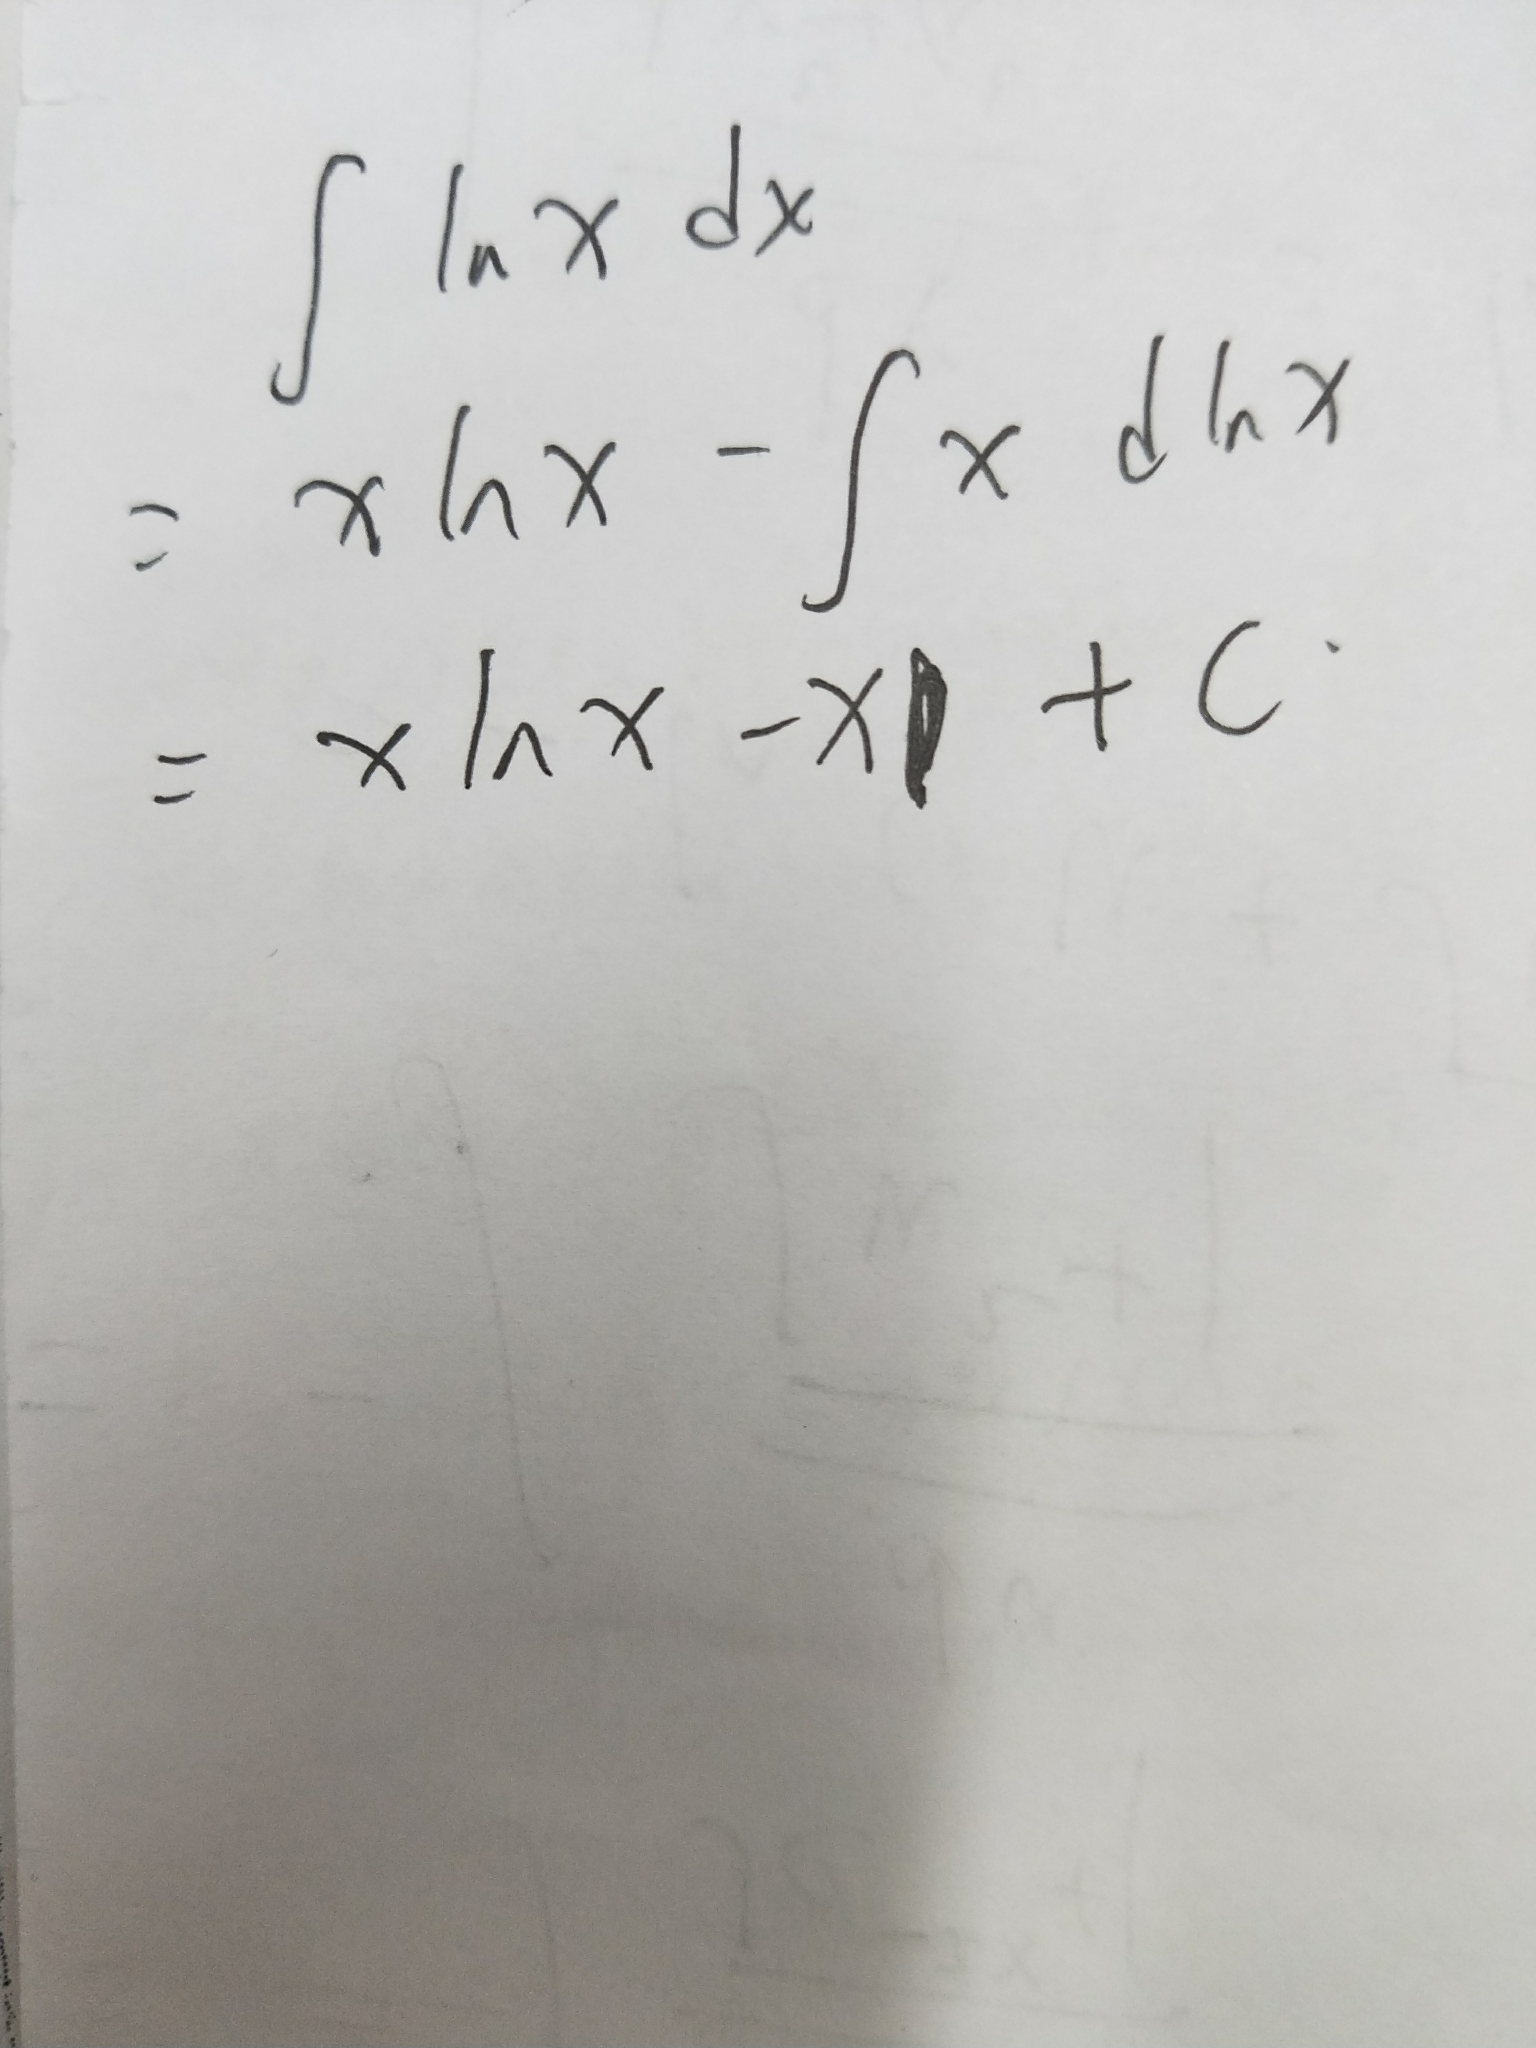 ∫ ln x dx
= x ln x - ∫ x d ln x
= x ln x - x + C.